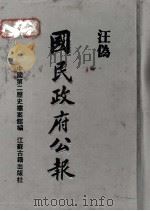 汪偽
國民政府公報
中國第二歷史檔案館編 江蘇古籍出版社